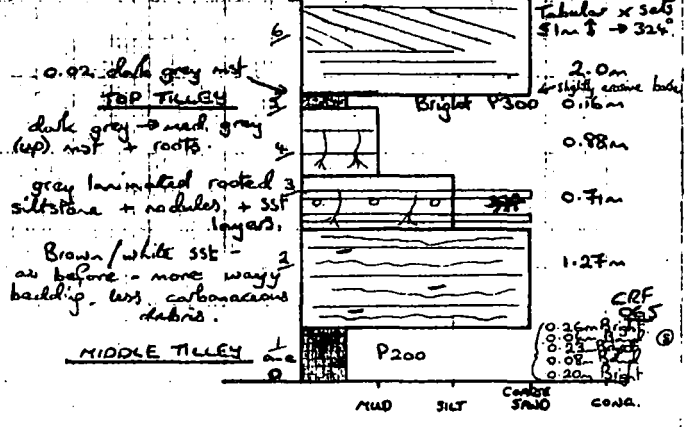 6
Tabular x sets
≤1m ↕ → 324°
2.0m
0.02 dark grey mst
← slightly erosive base
TOP TILLEY
5
Bright P300
0.16m
dark grey → med. grey
(up) mst + roots.
4
0.88m
grey laminated rooted
siltstone + nodules + sst
layers.
3
0.71m
Brown/white sst -
as before - more wavy
bedding, less carbonaceous
debris.
2
1.27m
CRF
065
MIDDLE TILLEY
1
a-e
0
P200
0.26m Bright
0.23 Bright
0.08m
0.20m Bright
MUD
SILT
COARSE
SAND
CONG.